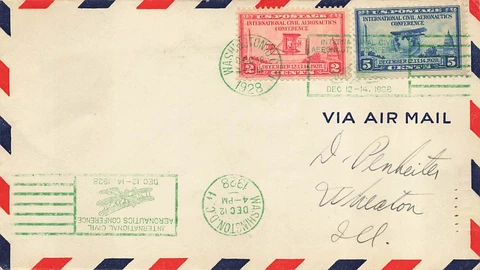 U.S. POSTAGE
INTERNATIONAL CIVIL AERONAUTICS
CONFERENCE
DECEMBER 12.13.14.1928
2 CENTS 2
U.S. POSTAGE
INTERNATIONAL CIVIL AERONAUTICS
CONFERENCE
DECEMBER 12.13.14.1928
5 CENTS 5
WASHINGTON, D.C.
1928
DEC 12-14, 1928
VIA AIR MAIL
D. Penheiter
Wheaton
Ill.
WASHINGTON, D.C.
DEC 12
4-PM
1928
INTERNATIONAL CIVIL
AERONAUTICS CONFERENCE
DEC 12-14 1928